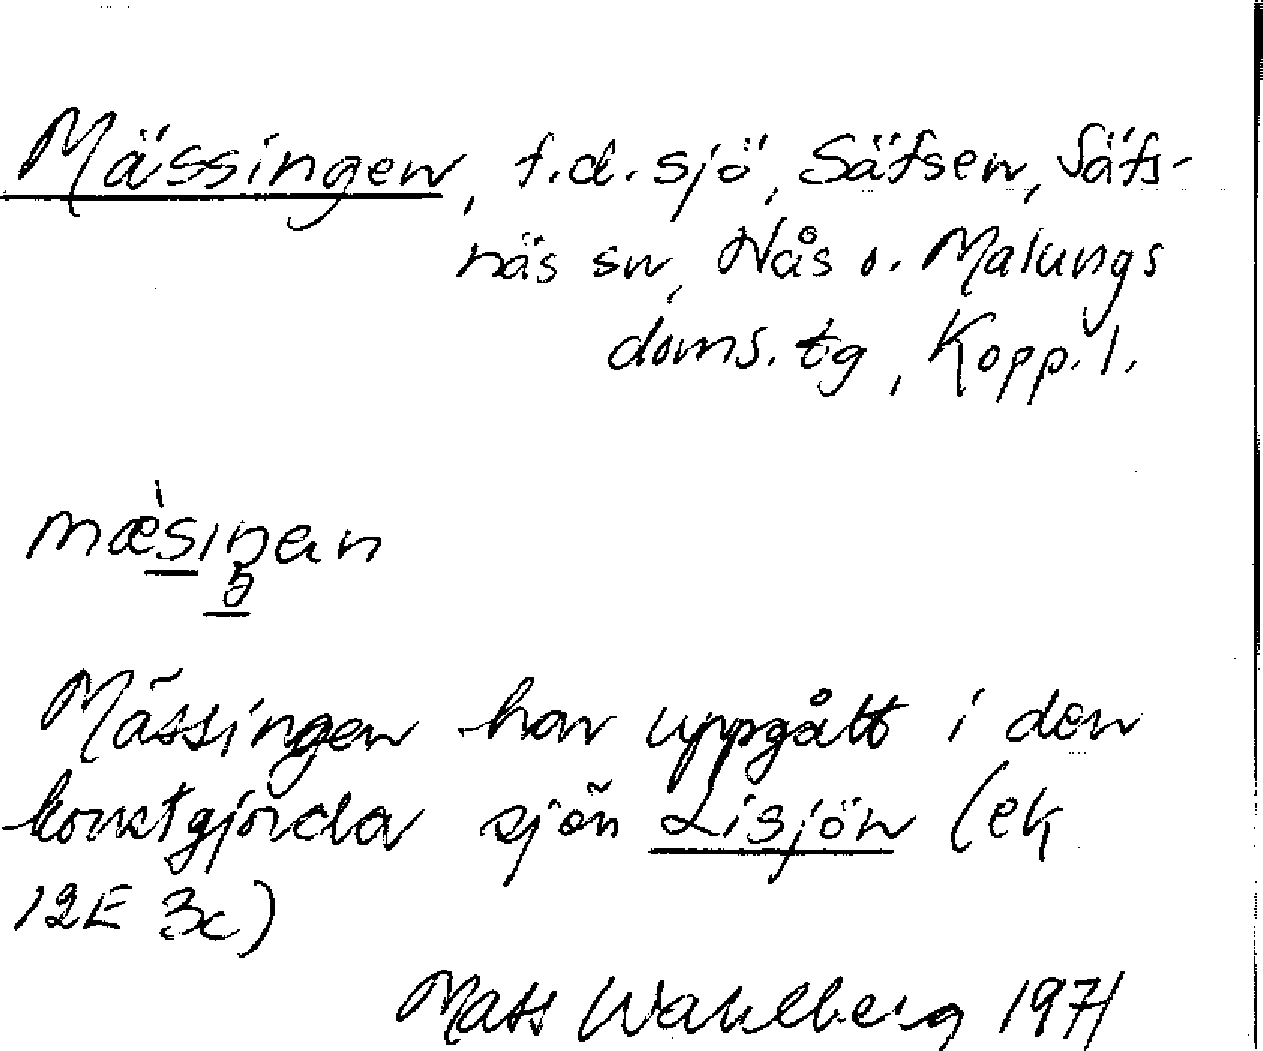 Mässingen, f.d. sjö, Säfsen, Säfs-
näs sn, Nås o. Malungs
doms. tg, Kopp. l.
mæ̀sıŋan
Mässingen har uppgått i den
konstgjorda sjön Lisjön (ek
12E 3c)
Mats Wahlberg 1971